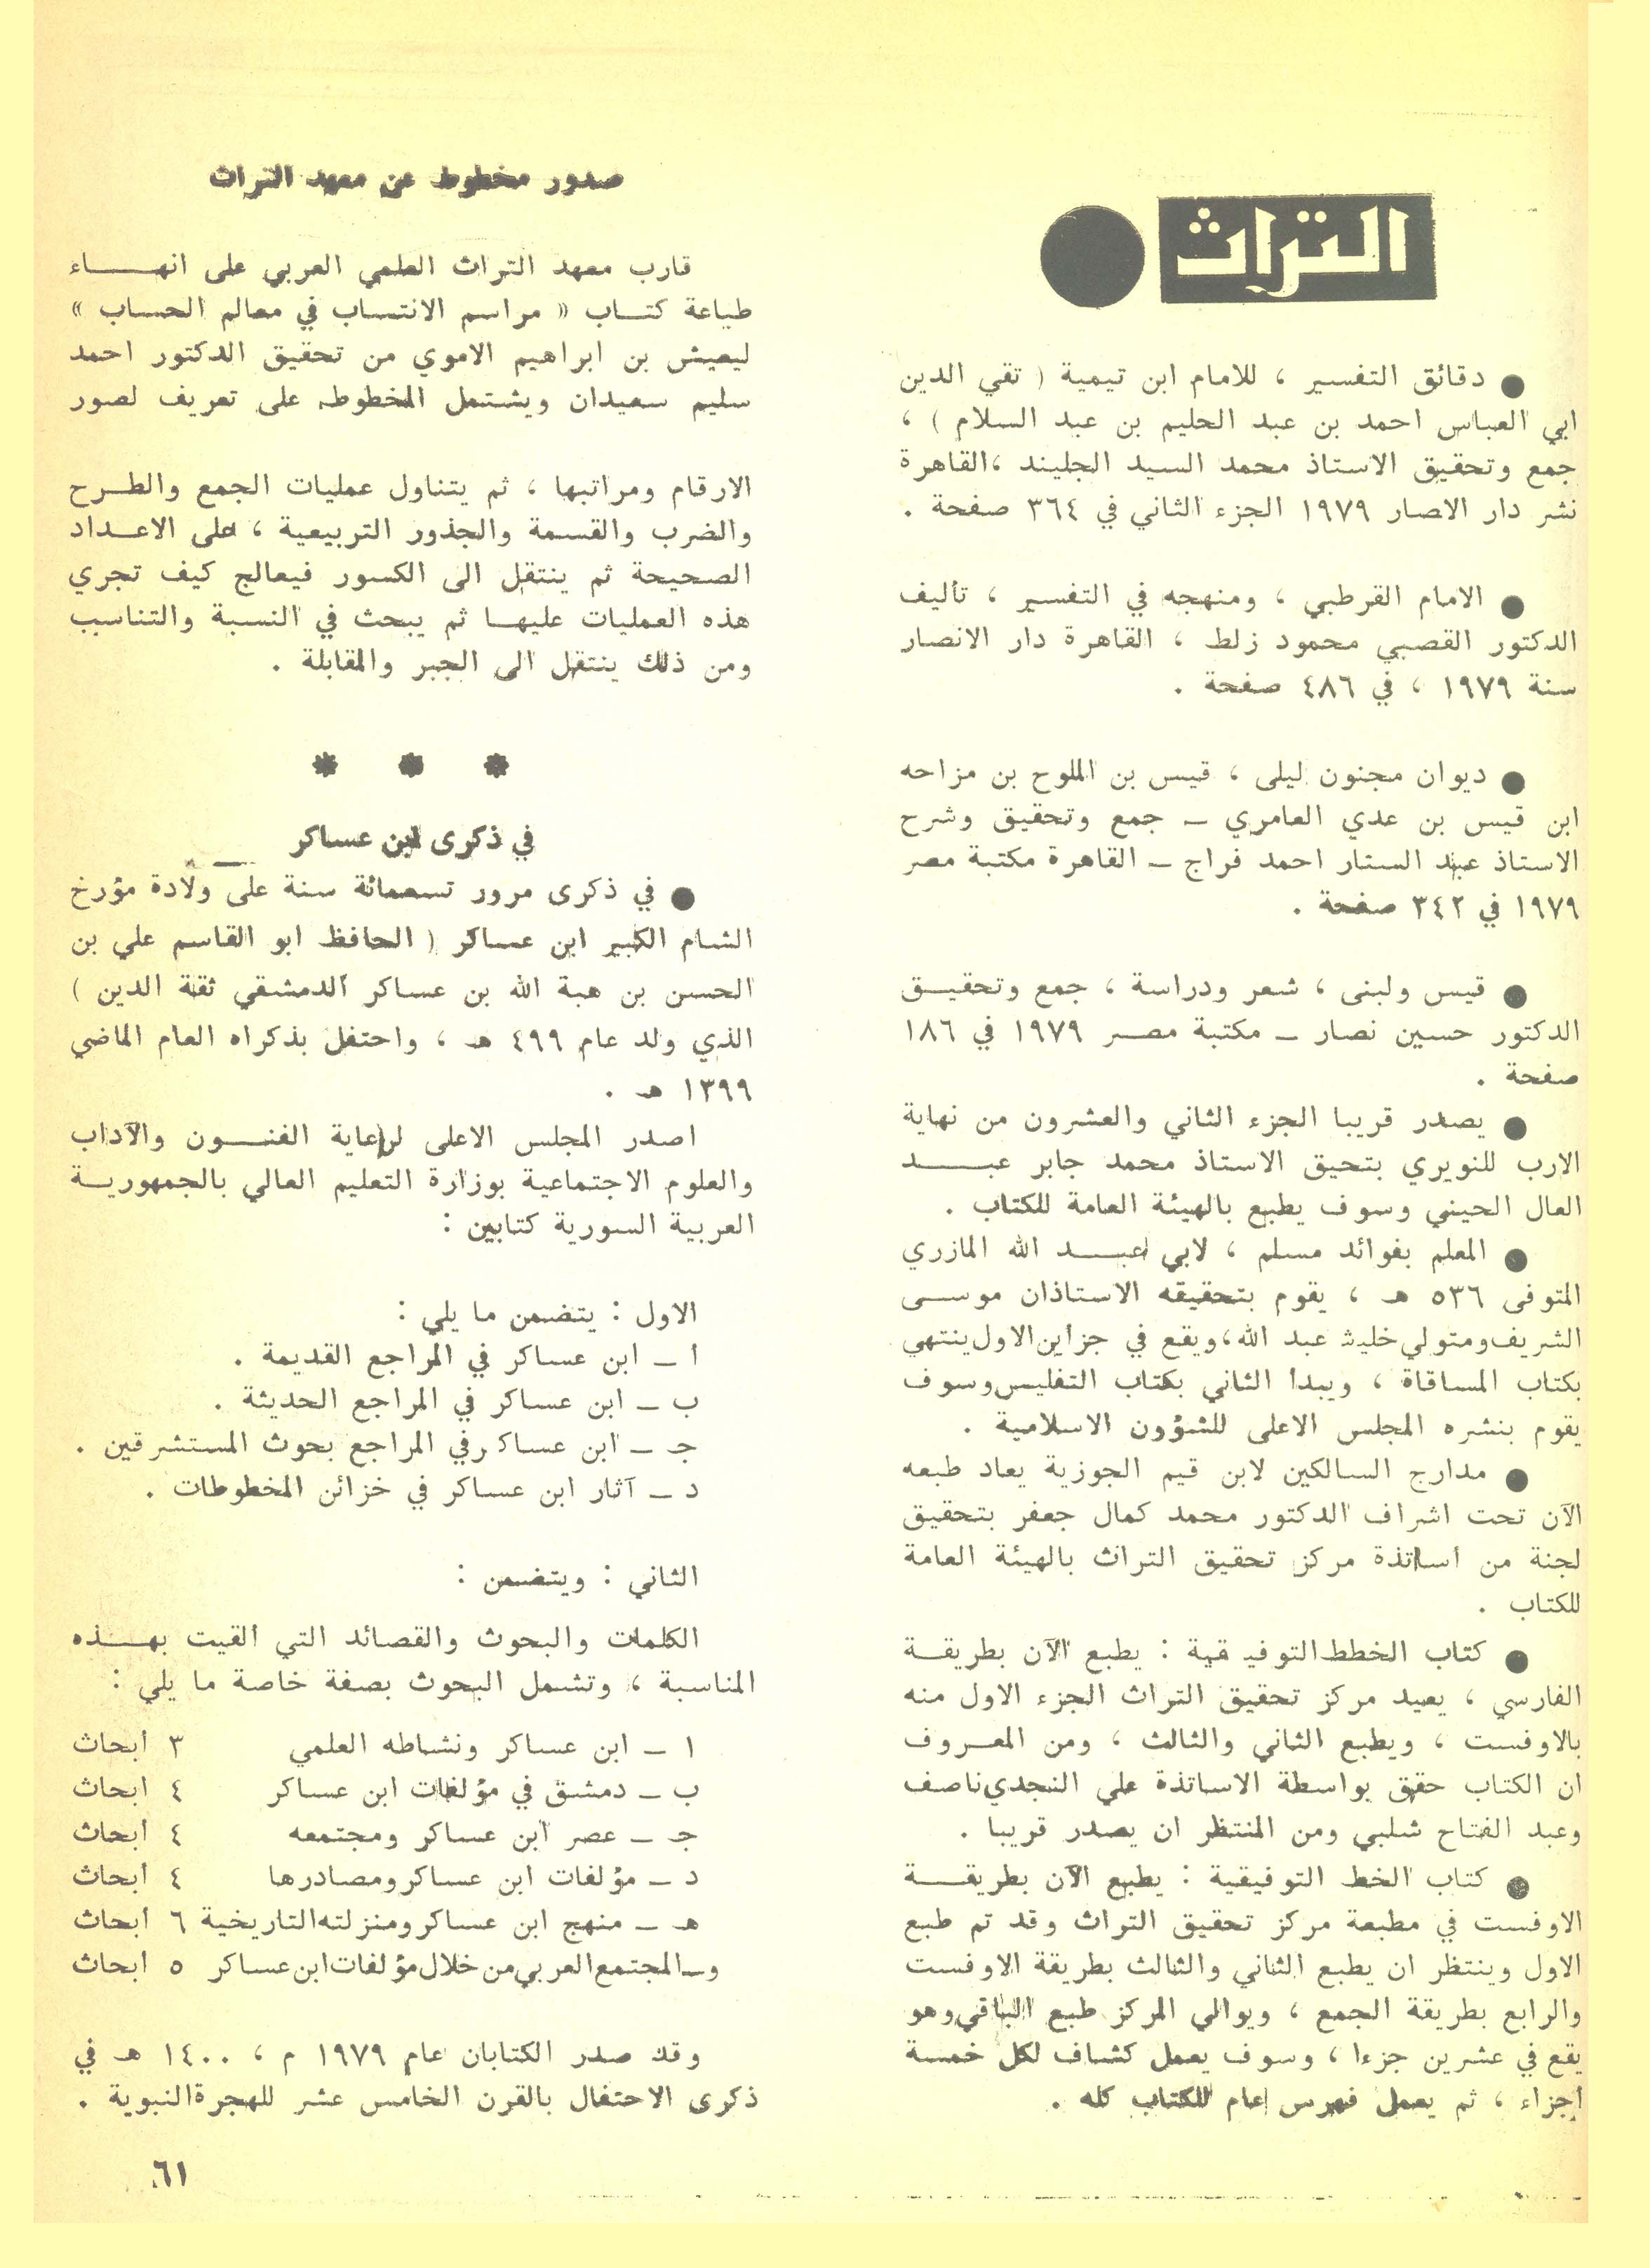 التراث
● دقائق التفسير ، للامام ابن تيمية ( تقي الدين
ابي العباس احمد بن عبد الحليم بن عبد السلام ) ،
جمع وتحقيق الاستاذ محمد السيد الجليند ،القاهرة
نشر دار الاصار ١٩٧٩ الجزء الثاني في ٣٦٤ صفحة .
● الامام القرطبي ، ومنهجه في التفسير ، تأليف
الدكتور القصبي محمود زلط ، القاهرة دار الانصار
سنة ١٩٧٩ ، في ٤٨٦ صفحة .
● ديوان مجنون ليلى ، قيس بن الملوح بن مزاحه
ابن قيس بن عدي العامري ـ جمع وتحقيق وشرح
الاستاذ عبد الستار احمد فراج ـ القاهرة مكتبة مصر
١٩٧٩ في ٣٤٢ صفحة .
● قيس ولبنى ، شعر ودراسة ، جمع وتحقيـق
الدكتور حسين نصار ـ مكتبة مصـر ١٩٧٩ في ١٨٦
صفحة .
● يصدر قريبا الجزء الثاني والعشرون من نهاية
الارب للنويري بتحيق الاستاذ محمد جابر عبـــد
العال الحيني وسوف يطبع بالهيئة العامة للكتاب .
● المعلم بفوائد مسلم ، لابي عبـــد الله المازري
المتوفى ٥٣٦ هـ ، يقوم بتحقيقه الاستاذان موسـى
الشريف ومتولي خليث عبد الله،ويقع في جزأين الاول ينتهي
بكتاب المساقاة ، ويبدأ الثاني بكتاب التفليس وسوف
يقوم بنشره المجلس الاعلى للشؤون الاسلامية .
● مدارج السالكين لابن قيم الجوزية يعاد طبعه
الآن تحت اشراف الدكتور محمد كمال جعفر بتحقيق
لجنة من أساتذة مركز تحقيق التراث بالهيئة العامة
للكتاب .
● كتاب الخطط التوفيقية : يطبع الآن بطريقـة
الفارسي ، يعيد مركز تحقيق التراث الجزء الاول منه
بالاوفست ، ويطبع الثاني والثالث ، ومن المعـروف
ان الكتاب حقق بواسطة الاساتذة علي النجدي ناصف
وعبد الفتاح شلبي ومن المنتظر ان يصدر قريبا .
● كتاب الخط التوفيقية : يطبع الآن بطريقــة
الاوفست في مطبعة مركز تحقيق التراث وقد تم طبع
الاول وينتظر ان يطبع الثاني والثالث بطريقة الاوفست
والرابع بطريقة الجمع ، ويوالي المركز طبع الباقي وهو
يقع في عشرين جزءا ، وسوف يعمل كشاف لكل خمسة
أجزاء ، ثم يعمل فهرس عام للكتاب كله .
صدور مخطوط عن معهد التراث
قارب معهد التراث العلمي العربي على انهـــاء
طباعة كتـاب « مراسم الانتساب في معالم الحساب »
ليعيش بن ابراهيم الاموي من تحقيق الدكتور احمد
سليم سعيدان ويشتمل المخطوطه على تعريف لصور
الارقام ومراتبها ، ثم يتناول عمليات الجمع والطـرح
والضرب والقسمة والجذور التربيعية ، على الاعـداد
الصحيحة ثم ينتقل الى الكسور فيعالج كيف تجري
هذه العمليات عليهـا ثم يبحث في النسبة والتناسب
ومن ذلك ينتقل الى الجبر والمقابلة .
* * *
في ذكرى ابن عساكر
● في ذكرى مرور تسعمائة سنة على ولادة مؤرخ
الشام الكبير ابن عساكر ( الحافظ ابو القاسم علي بن
الحسن بن هبة الله بن عساكر الدمشقي ثقة الدين )
الذي ولد عام ٤٩٩ هـ ، واحتفل بذكراه العام الماضي
١٣٩٩ هـ .
اصدر المجلس الاعلى لرعاية الفنــون والآداب
والعلوم الاجتماعية بوزارة التعليم العالي بالجمهوريـة
العربية السورية كتابين :
الاول : يتضمن ما يلي :
أ ـ ابن عساكر في المراجع القديمة .
ب ـ ابن عساكر في المراجع الحديثة .
جـ ـ ابن عساكر في المراجع بحوث المستشرقين .
د ـ آثار ابن عساكر في خزائن المخطوطات .
الثاني : ويتضمن :
الكلمات والبحوث والقصائد التي ألقيت بهــذه
المناسبة ، وتشمل البحوث بصفة خاصة ما يلي :
ا ـ ابن عساكر ونشاطه العلمي ٣ أبحاث
ب ـ دمشق في مؤلفات ابن عساكر ٤ ابحاث
جـ ـ عصر ابن عساكر ومجتمعه ٤ أبحاث
د ـ مؤلفات ابن عساكر ومصادرها ٤ أبحاث
هـ ـ منهج ابن عساكر ومنزلته التاريخية ٦ أبحاث
و ـ المجتمع العربي من خلال مؤلفات ابن عساكر ٥ ابحاث
وقد صدر الكتابان عام ١٩٧٩ م ، ١٤٠٠ هـ في
ذكرى الاحتفال بالقرن الخامس عشر للهجرة النبوية .
٦١